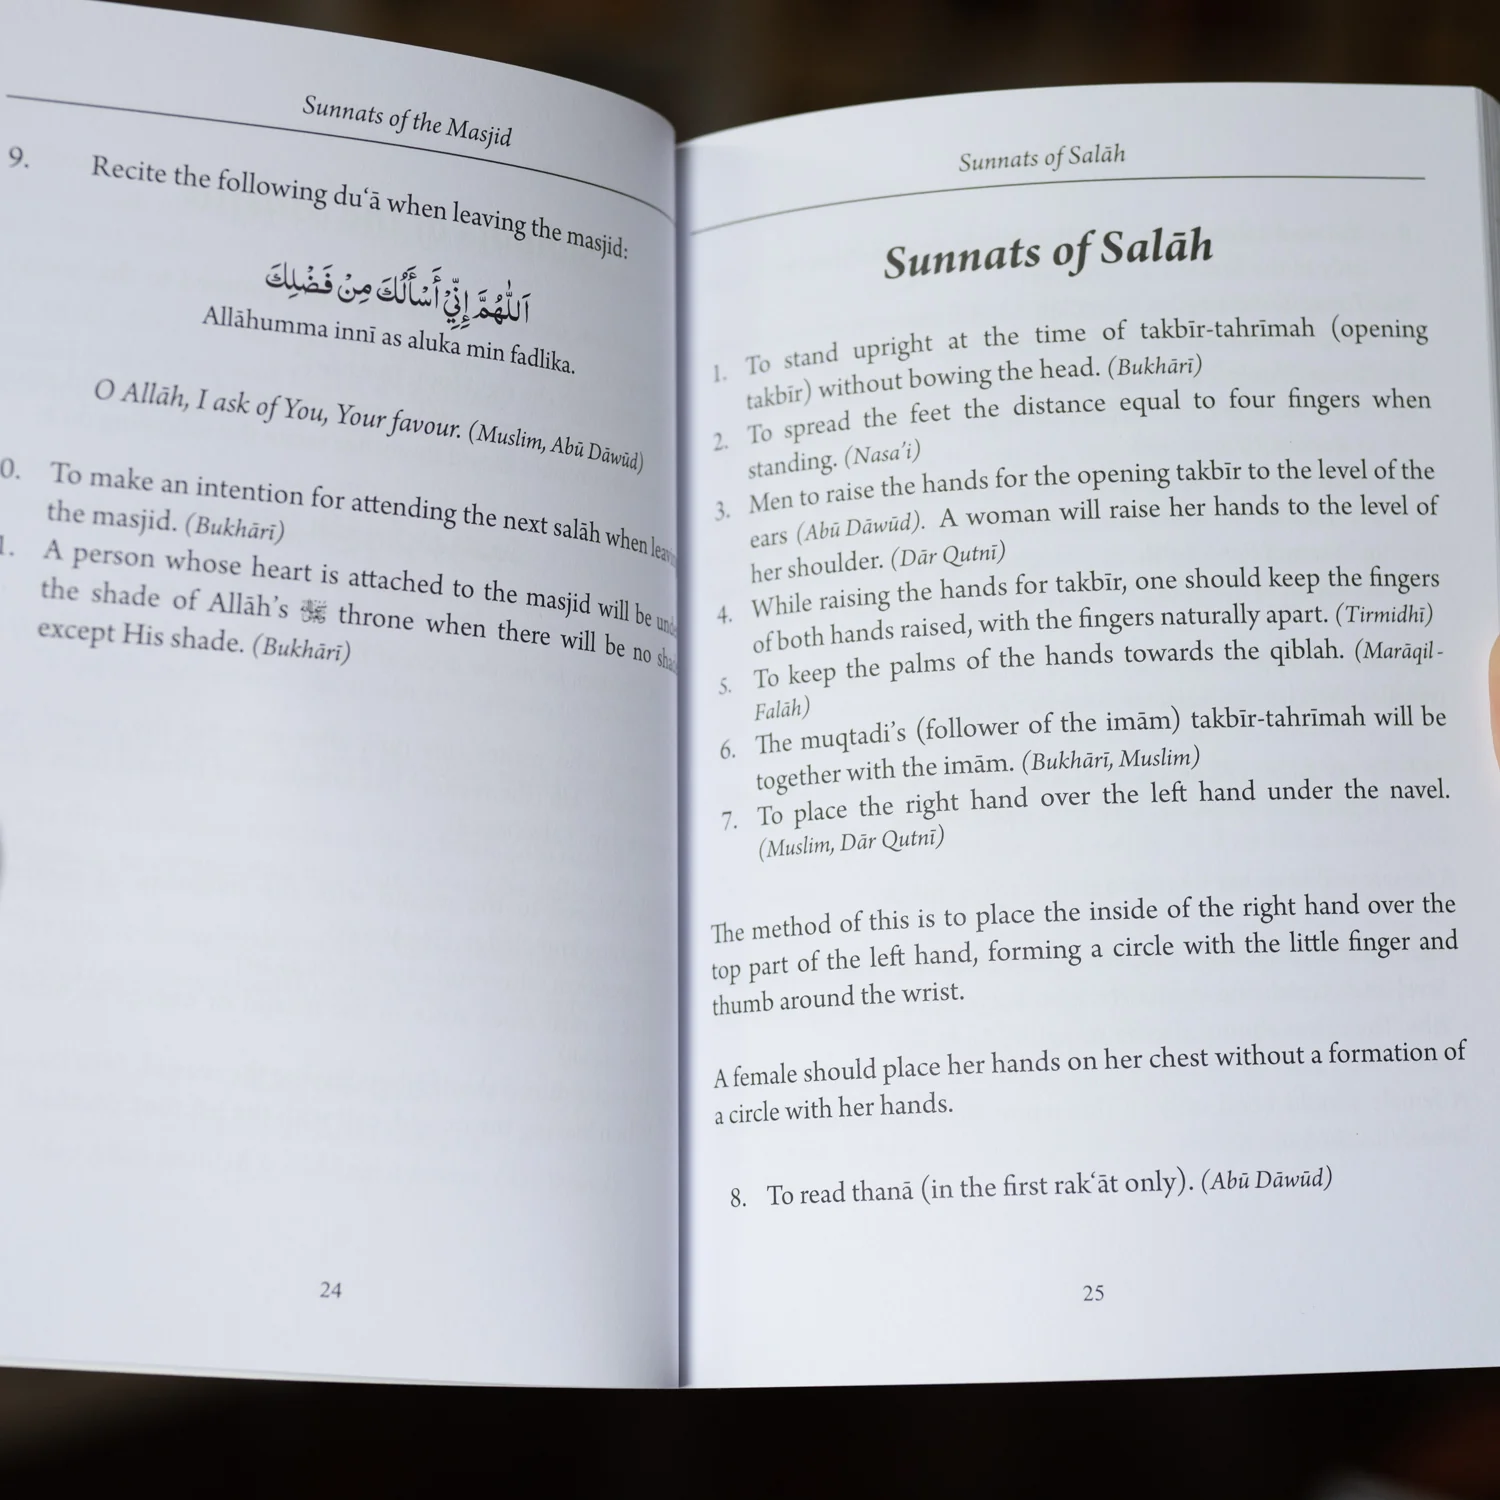 Sunnats of the Masjid
9. Recite the following du‘ā when leaving the masjid:
اَللّٰهُمَّ إِنِّيْ أَسْأَلُكَ مِنْ فَضْلِكَ
Allāhumma innī as aluka min fadlika.
O Allāh, I ask of You, Your favour. (Muslim, Abū Dāwūd)
0. To make an intention for attending the next salāh when leavin
the masjid. (Bukhārī)
1. A person whose heart is attached to the masjid will be unde
the shade of Allāh’s throne when there will be no shad
except His shade. (Bukhārī)
24
Sunnats of Salāh
Sunnats of Salāh
1. To stand upright at the time of takbīr-tahrīmah (opening
takbīr) without bowing the head. (Bukhārī)
2. To spread the feet the distance equal to four fingers when
standing. (Nasa’i)
3. Men to raise the hands for the opening takbīr to the level of the
ears (Abū Dāwūd). A woman will raise her hands to the level of
her shoulder. (Dār Qutnī)
4. While raising the hands for takbīr, one should keep the fingers
of both hands raised, with the fingers naturally apart. (Tirmidhī)
5. To keep the palms of the hands towards the qiblah. (Marāqil-
Falāh)
6. The muqtadi’s (follower of the imām) takbīr-tahrīmah will be
together with the imām. (Bukhārī, Muslim)
7. To place the right hand over the left hand under the navel.
(Muslim, Dār Qutnī)
The method of this is to place the inside of the right hand over the
top part of the left hand, forming a circle with the little finger and
thumb around the wrist.
A female should place her hands on her chest without a formation of
a circle with her hands.
8. To read thanā (in the first rak‘āt only). (Abū Dāwūd)
25